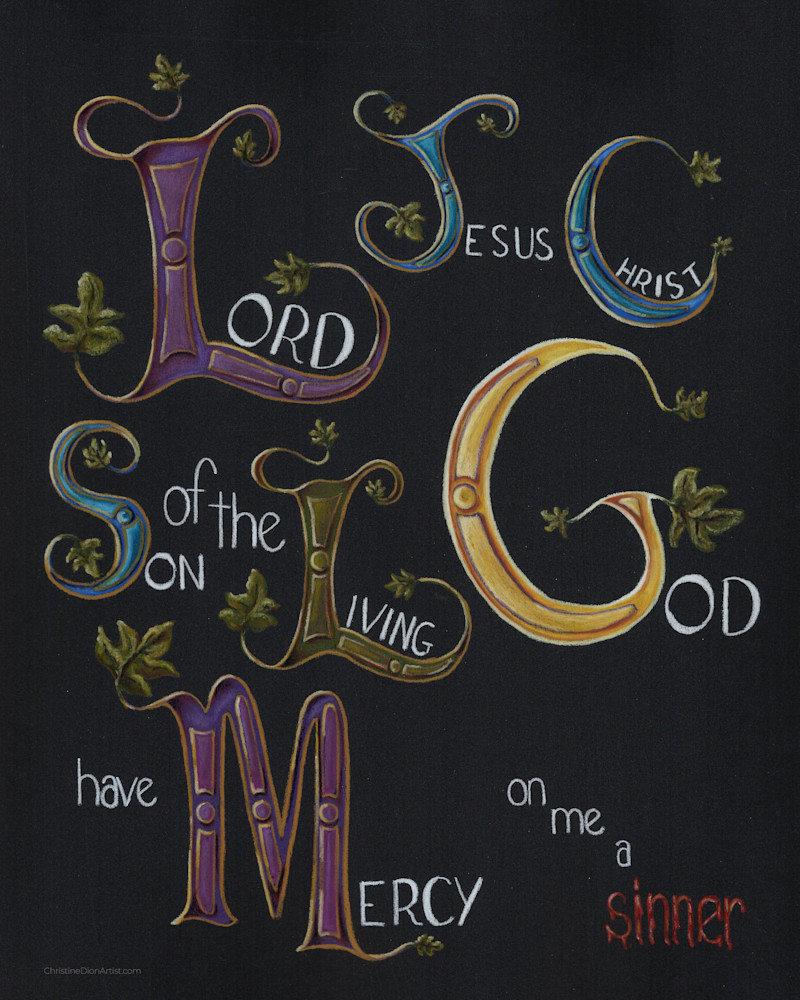 LORD JESUS CHRIST
SON of the LIVING GOD
have MERCY on me a sinner
ChristineDionArtist.com